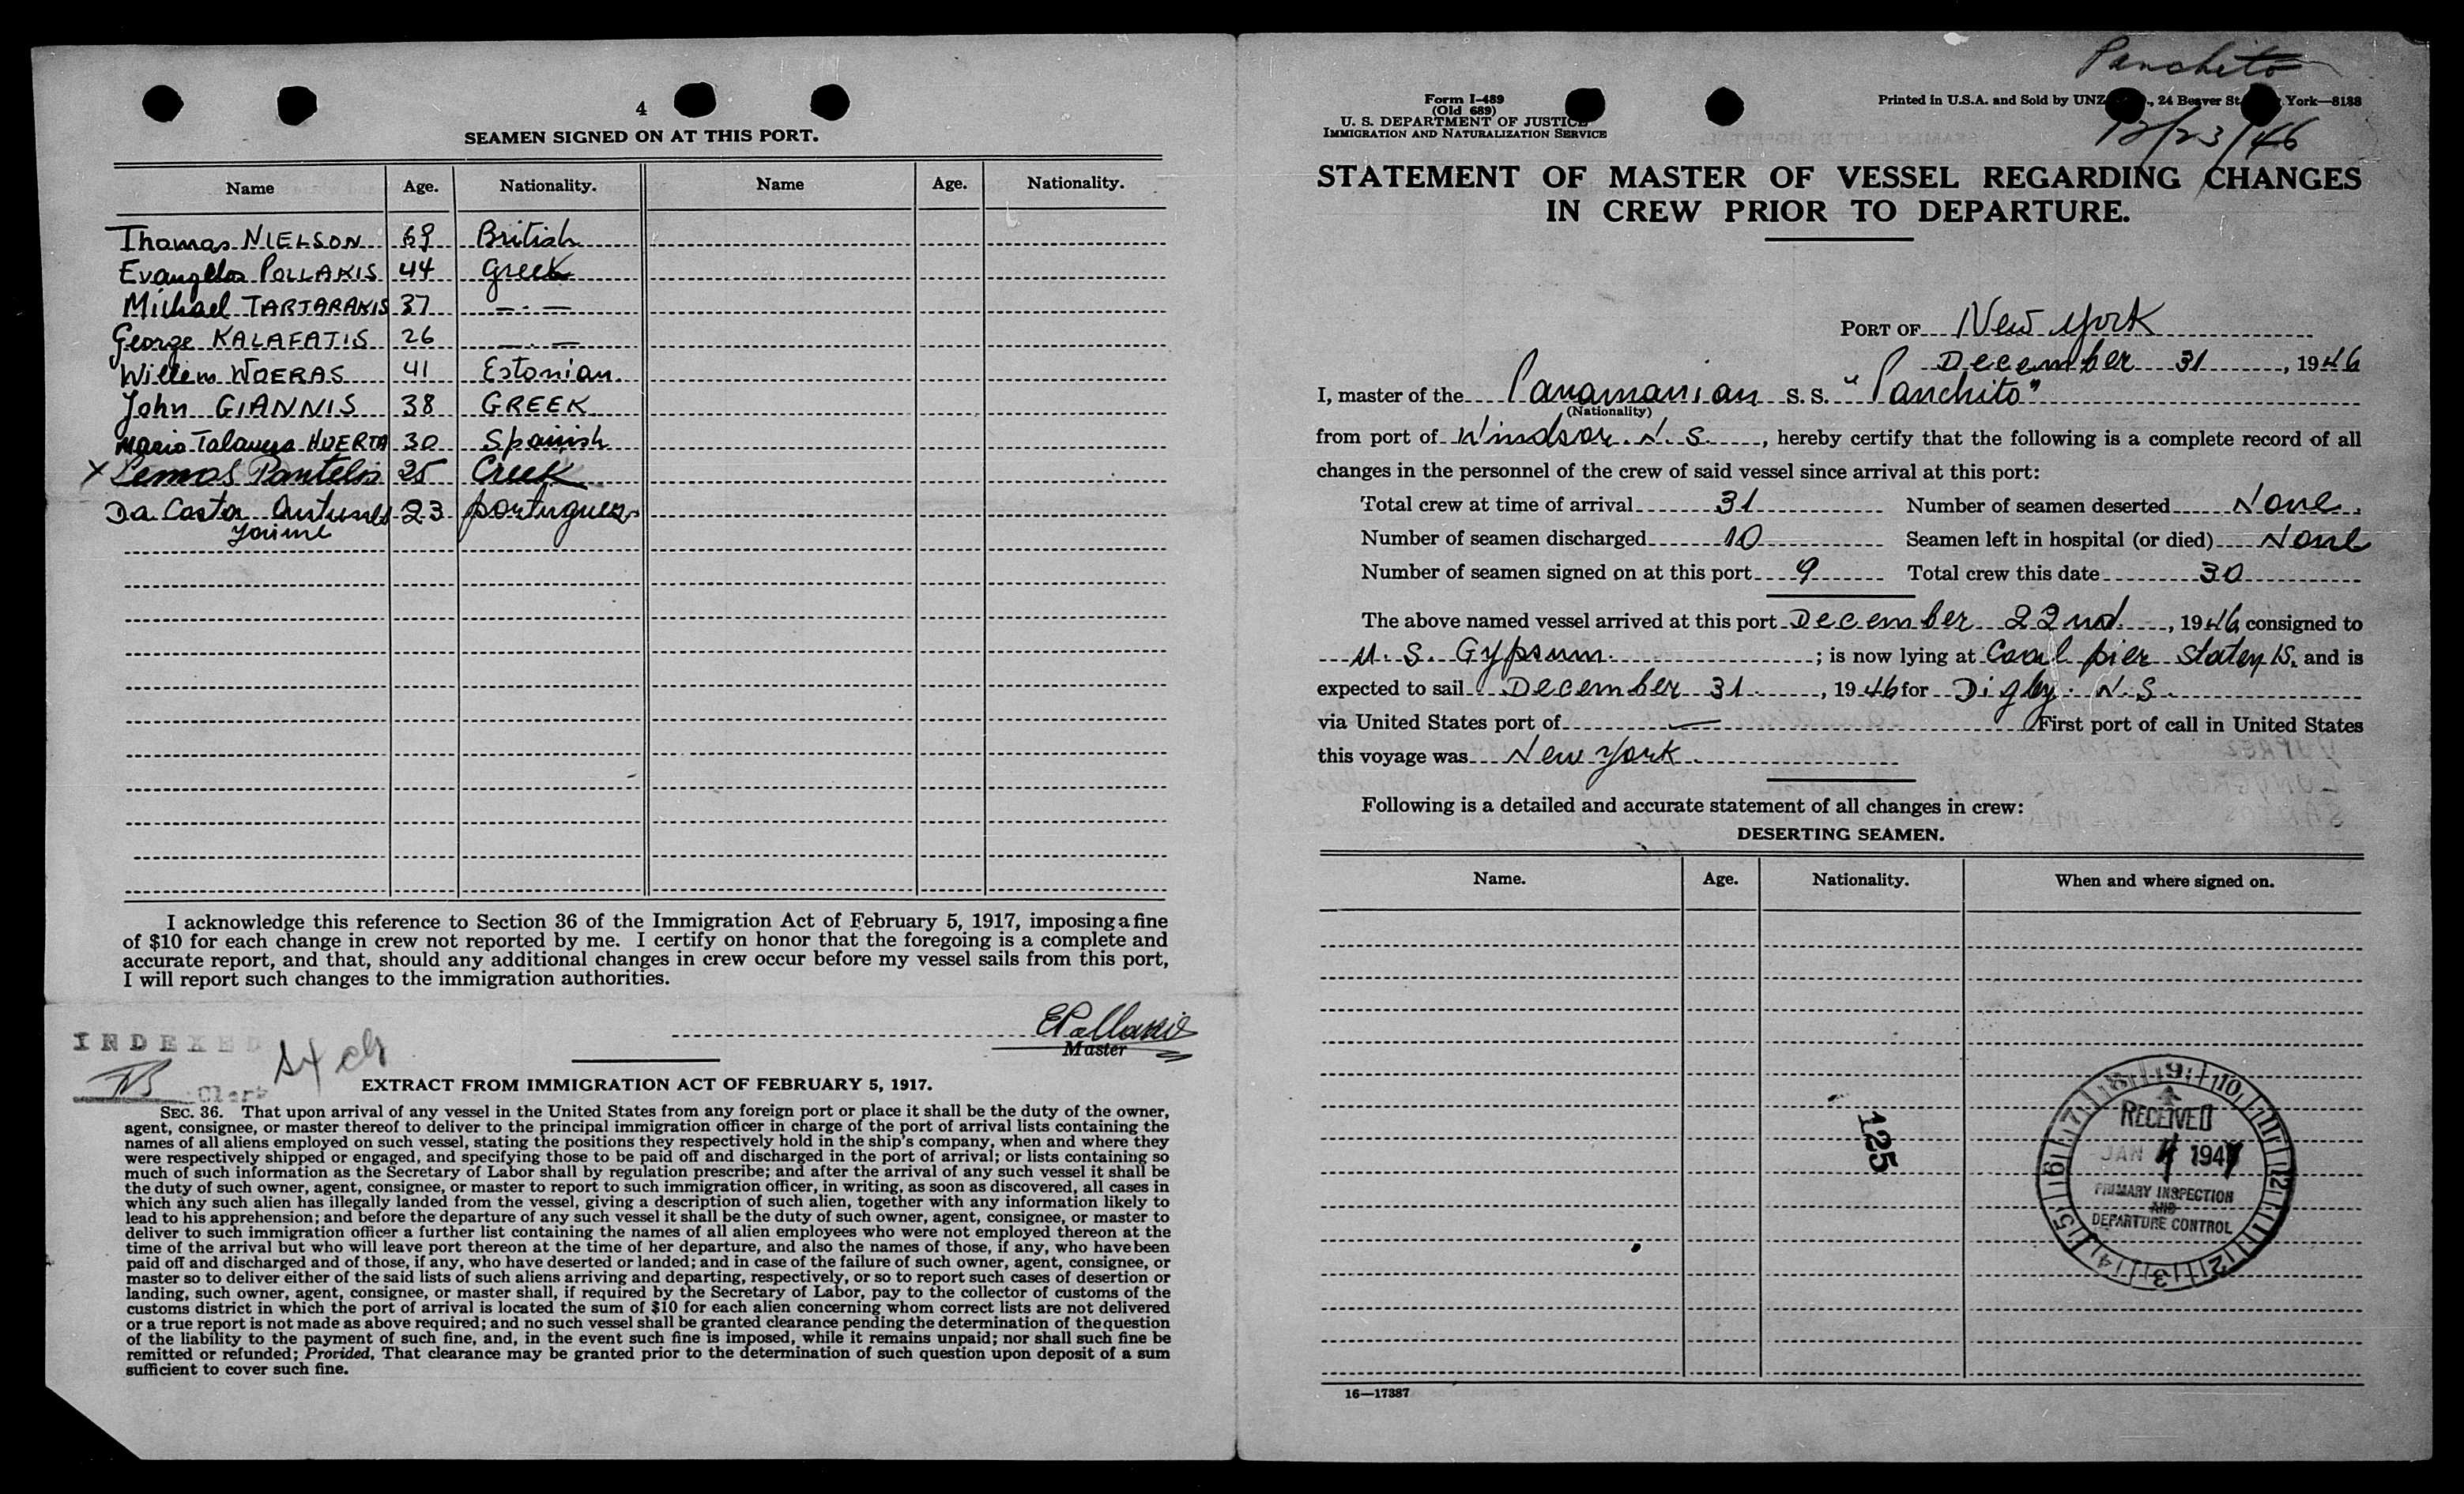 4
SEAMEN SIGNED ON AT THIS PORT.
Name Age. Nationality. Name Age. Nationality.
Thomas NIELSON 69 British
Evangellos POLLAKIS 44 Greek
Michael TARTARAKIS 37 —.—
George KALAFATIS 26 —.—
Willem WOERAS 41 Estonian
John GIANNIS 38 GREEK
Mario Talavera HUERTA 30 Spanish
x Lemos Pantelis 25 Creek
Da Costa Antunes 23 portuguese
I acknowledge this reference to Section 36 of the Immigration Act of February 5, 1917, imposing a fine
of $10 for each change in crew not reported by me. I certify on honor that the foregoing is a complete and
accurate report, and that, should any additional changes in crew occur before my vessel sails from this port,
I will report such changes to the immigration authorities.
EPollakis
Master
INDEXED
Clerk
EXTRACT FROM IMMIGRATION ACT OF FEBRUARY 5, 1917.
SEC. 36. That upon arrival of any vessel in the United States from any foreign port or place it shall be the duty of the owner,
agent, consignee, or master thereof to deliver to the principal immigration officer in charge of the port of arrival lists containing the
names of all aliens employed on such vessel, stating the positions they respectively hold in the ship's company, when and where they
were respectively shipped or engaged, and specifying those to be paid off and discharged in the port of arrival; or lists containing so
much of such information as the Secretary of Labor shall by regulation prescribe; and after the arrival of any such vessel it shall be
the duty of such owner, agent, consignee, or master to report to such immigration officer, in writing, as soon as discovered, all cases in
which any such alien has illegally landed from the vessel, giving a description of such alien, together with any information likely to
lead to his apprehension; and before the departure of any such vessel it shall be the duty of such owner, agent, consignee, or master to
deliver to such immigration officer a further list containing the names of all alien employees who were not employed thereon at the
time of the arrival but who will leave port thereon at the time of her departure, and also the names of those, if any, who have been
paid off and discharged and of those, if any, who have deserted or landed; and in case of the failure of such owner, agent, consignee, or
master so to deliver either of the said lists of such aliens arriving and departing, respectively, or so to report such cases of desertion or
landing, such owner, agent, consignee, or master shall, if required by the Secretary of Labor, pay to the collector of customs of the
customs district in which the port of arrival is located the sum of $10 for each alien concerning whom correct lists are not delivered
or a true report is not made as above required; and no such vessel shall be granted clearance pending the determination of the question
of the liability to the payment of such fine, and, in the event such fine is imposed, while it remains unpaid; nor shall such fine be
remitted or refunded; Provided, That clearance may be granted prior to the determination of such question upon deposit of a sum
sufficient to cover such fine.
Panchito
Form I-489
(Old 689)
U. S. DEPARTMENT OF JUSTICE
IMMIGRATION AND NATURALIZATION SERVICE
Printed in U.S.A. and Sold by UNZ ., 24 Beaver St York—8138
12/23/46
STATEMENT OF MASTER OF VESSEL REGARDING CHANGES
IN CREW PRIOR TO DEPARTURE.
PORT OF New York
December 31, 1946
I, master of the Panamanian S. S. "Panchito"
(Nationality)
from port of Windsor. N. S., hereby certify that the following is a complete record of all
changes in the personnel of the crew of said vessel since arrival at this port:
Total crew at time of arrival 31 Number of seamen deserted None.
Number of seamen discharged 10 Seamen left in hospital (or died) None
Number of seamen signed on at this port 9 Total crew this date 30
The above named vessel arrived at this port December 22nd, 1946, consigned to
U. S. Gypsum. ; is now lying at Coal pier Staten IS. and is
expected to sail December 31., 1946 for Digby. N. S.
via United States port of — First port of call in United States
this voyage was New York.
Following is a detailed and accurate statement of all changes in crew:
DESERTING SEAMEN.
Name. Age. Nationality. When and where signed on.
125
9 10 11 12 1 2 3 4 5 6 7 8
RECEIVED
JAN 4 1947
PRIMARY INSPECTION
AND
DEPARTURE CONTROL
16—17387